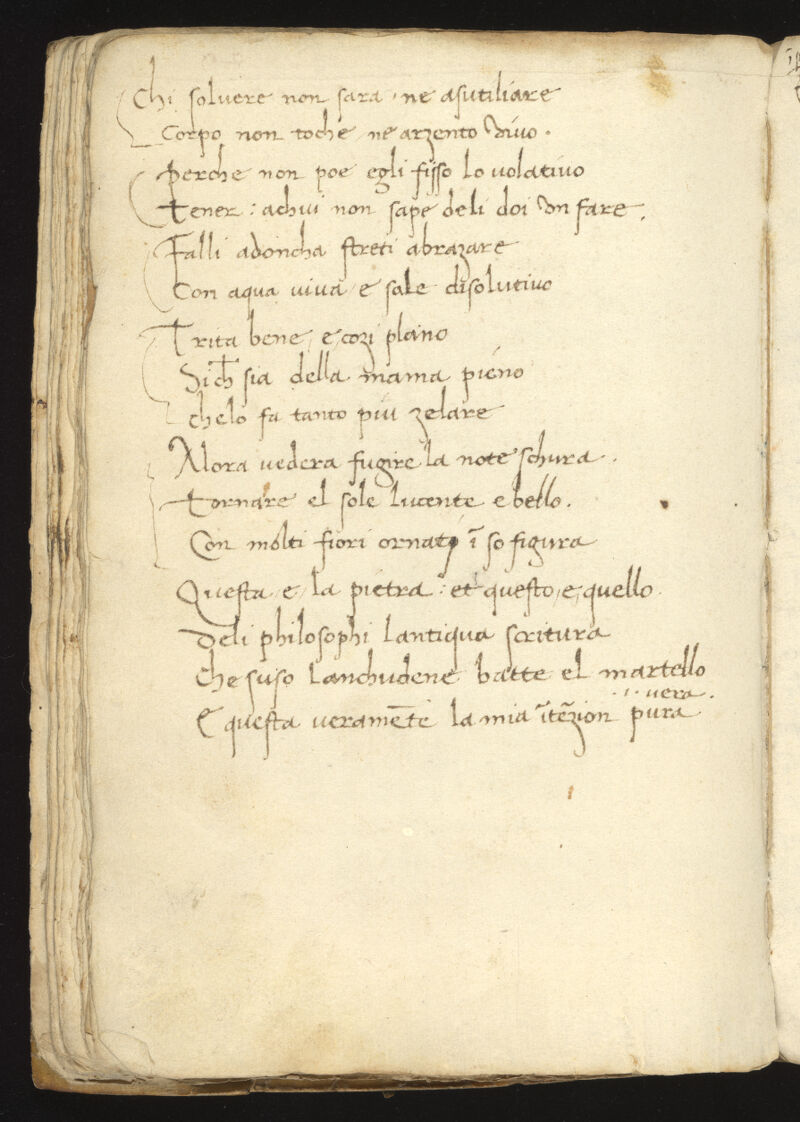 Chi solvere non sara, ne asutiliare
Corpo non toche, ne arzento vivo.
Perche non poe egli fisso lo volativo
Tener: achui non sape deli doi un fare.
Falli adoncha streti abrazare
Con aqua viva e sale disolutivo
Trita bene, e cozi plano
Sich sia della mama pieno
chelo fa tanto piu zelare
Alora vedera fugire la note schura.
Tornare el sole lucente e bello.
Con molti fiori ornato ī so figura
Questa, e, la pietra: et questo, e, quello.
Deli philosophi lantiqua scritura
Che suso lanchudene batte el martello
vera.
E questa veramēte la mia ītēzion pura